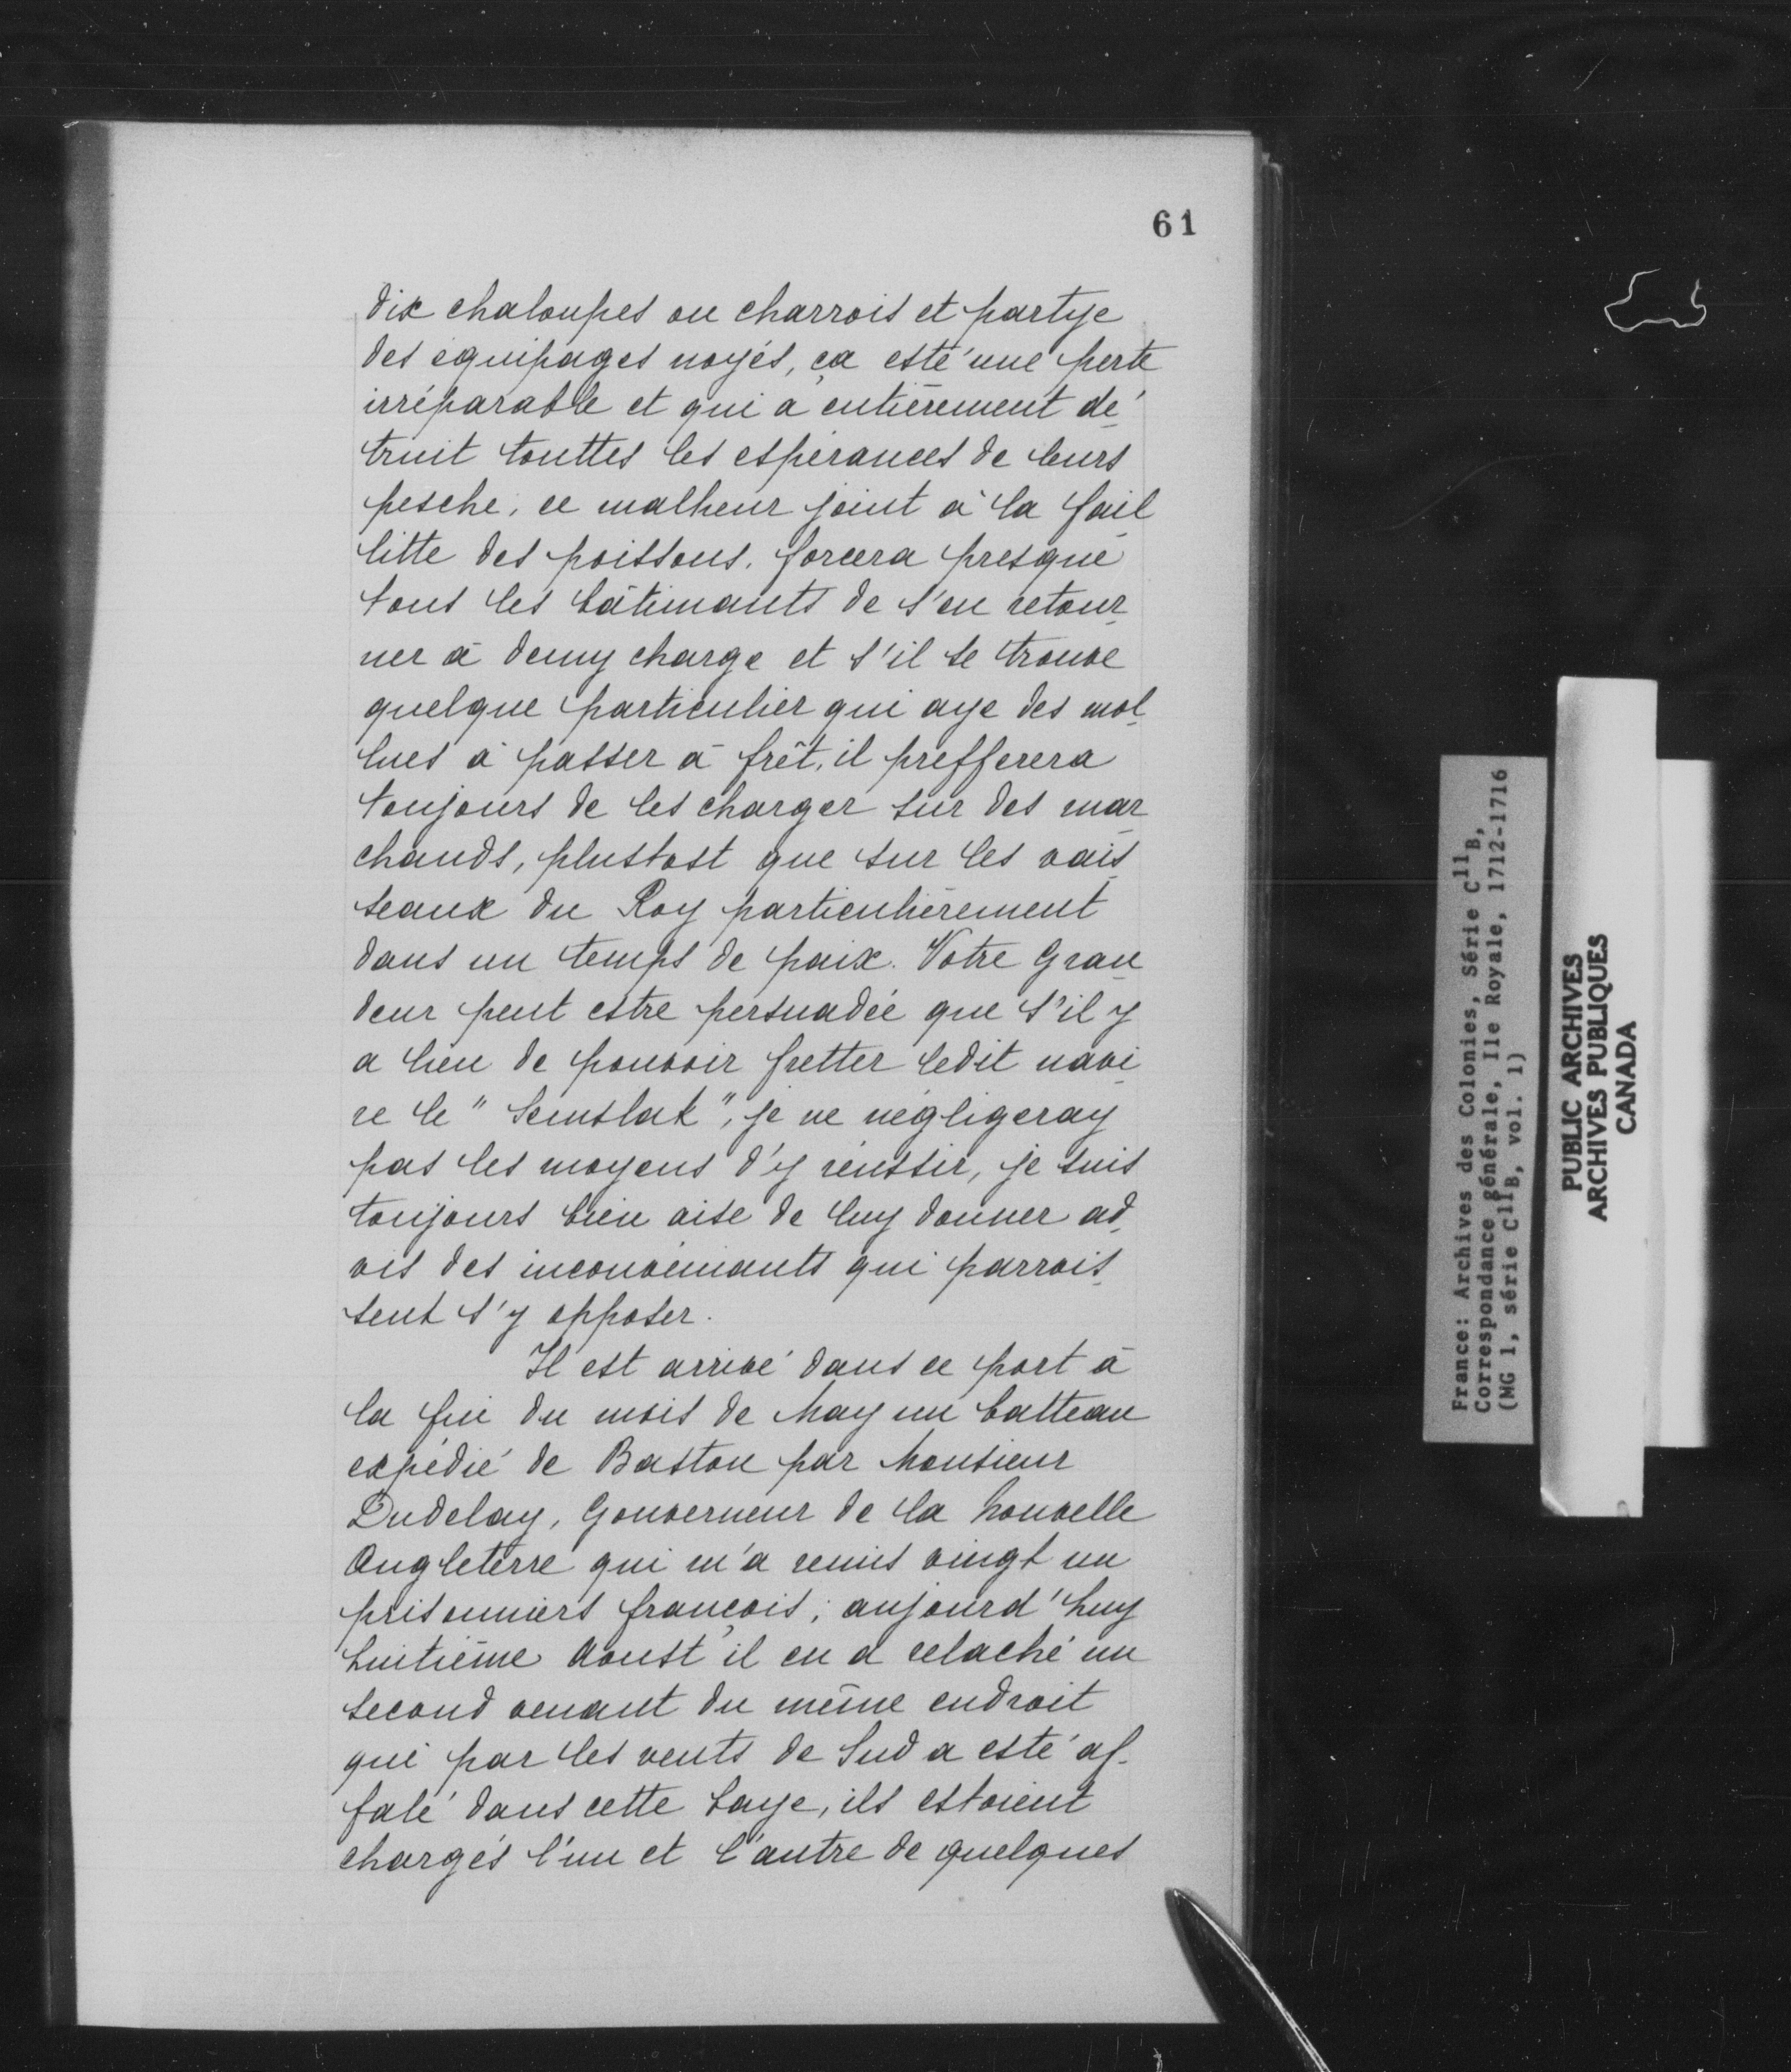 61
dix chaloupes ou charrois et partye
des équipages noyés, ça esté une perte
irréparable et qui a entièrement dé
truit touttes les espérances de leurs
pesche, ce malheur joint à la fail
litte des poissons, forcera presque
tous les bâtimants de s'en retour
ner à demy charge et s'il se trouve
quelque particulier qui aye des mol
lues à passer à frêt, il prefferera
toujours de les charger sur des mar
chands, plustost que sur les vais
seaux du Roy particulièrement
dans un temps de paix. Votre Gran
deur peut estre persuadée que s'il y
a lieu de pouvoir fretter ledit navi
re le "Semslak", je ne négligeray
pas les moyens d'y réussir, je suis
toujours bien aise de luy donner ad
vis des inconvéniants qui parrois
sent s'y opposer.
Il est arrivé dans ce port à
la fin du mois de May un batteau
expédié de Baston par Monsieur
Dudelay, Gouverneur de la Nouvelle
Angleterre qui m'a remis vingt un
prisonniers françois; aujourd'huy
huitième Aoust il en a relaché un
second venant du même endroit
qui par les vents de Sud a esté af
falé dans cette baye, ils estoient
chargés l'un et l'autre de quelques
France: Archives des Colonies, Série C11B,
Correspondance générale, Ile Royale, 1712-1716
(MG 1, série C11B, vol. 1)
PUBLIC ARCHIVES
ARCHIVES PUBLIQUES
CANADA